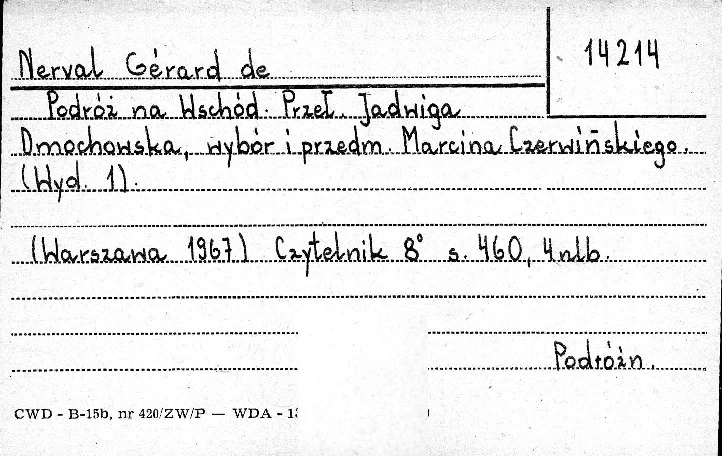 Nerval Gérard de
14214
Podróż na Wschód. Przeł. Jadwiga
Dmochowska, wybór i przedm. Marcina Czerwińskiego.
(Wyd. 1).
(Warszawa 1967) Czytelnik 8° s. 460, 4 nlb.
Podróżn.
CWD - B-15b, nr 420/ZW/P — WDA - 1